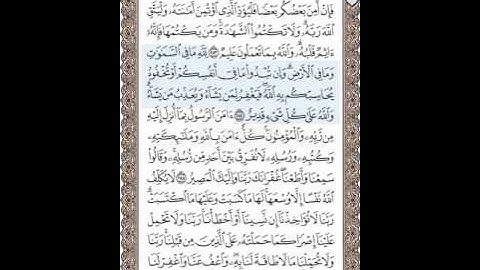 فَإِنْ أَمِنَ بَعْضُكُم بَعْضًا فَلْيُؤَدِّ الَّذِي اؤْتُمِنَ أَمَانَتَهُ وَلْيَتَّقِ
اللَّهَ رَبَّهُ وَلَا تَكْتُمُوا الشَّهَادَةَ وَمَن يَكْتُمْهَا فَإِنَّهُ
ءَاثِمٌ قَلْبُهُ وَاللَّهُ بِمَا تَعْمَلُونَ عَلِيمٌ ۝ لِّلَّهِ مَا فِي السَّمَاوَاتِ
وَمَا فِي الْأَرْضِ وَإِن تُبْدُوا مَا فِي أَنفُسِكُمْ أَوْ تُخْفُوهُ
يُحَاسِبْكُم بِهِ اللَّهُ فَيَغْفِرُ لِمَن يَشَاءُ وَيُعَذِّبُ مَن يَشَاءُ
وَاللَّهُ عَلَىٰ كُلِّ شَيْءٍ قَدِيرٌ ۝ ءَامَنَ الرَّسُولُ بِمَا أُنزِلَ إِلَيْهِ
مِن رَّبِّهِ وَالْمُؤْمِنُونَ كُلٌّ ءَامَنَ بِاللَّهِ وَمَلَائِكَتِهِ
وَكُتُبِهِ وَرُسُلِهِ لَا نُفَرِّقُ بَيْنَ أَحَدٍ مِّن رُّسُلِهِ وَقَالُوا
سَمِعْنَا وَأَطَعْنَا غُفْرَانَكَ رَبَّنَا وَإِلَيْكَ الْمَصِيرُ ۝ لَا يُكَلِّفُ
اللَّهُ نَفْسًا إِلَّا وُسْعَهَا لَهَا مَا كَسَبَتْ وَعَلَيْهَا مَا اكْتَسَبَتْ
رَبَّنَا لَا تُؤَاخِذْنَا إِن نَّسِينَا أَوْ أَخْطَأْنَا رَبَّنَا وَلَا تَحْمِلْ
عَلَيْنَا إِصْرًا كَمَا حَمَلْتَهُ عَلَى الَّذِينَ مِن قَبْلِنَا رَبَّنَا
وَلَا تُحَمِّلْنَا مَا لَا طَاقَةَ لَنَا بِهِ وَاعْفُ عَنَّا وَاغْفِرْ لَنَا